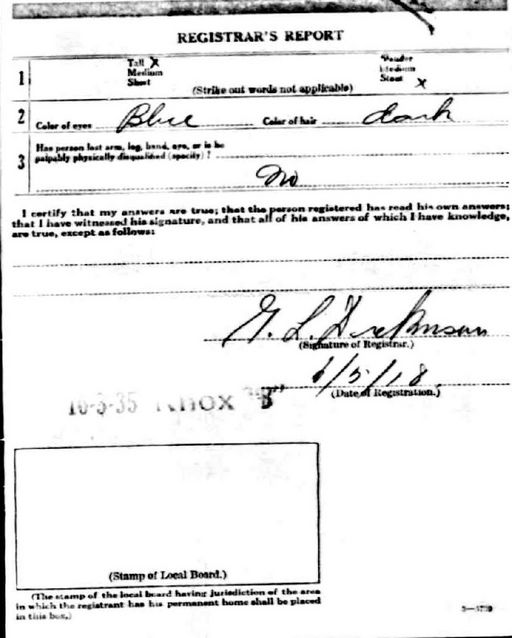 REGISTRAR'S REPORT
1
Tall X
Medium
Short
Slender
Medium
Stout X
(Strike out words not applicable)
2
Color of eyes Blue Color of hair dark
3
Has person lost arm, leg, hand, eye, or is he
palpably physically disqualified (specify)?
No
I certify that my answers are true; that the person registered has read his own answers;
that I have witnessed his signature, and that all of his answers of which I have knowledge,
are true, except as follows:
G. L. Dickinson
(Signature of Registrar.)
6/5/18.
(Date of Registration.)
10-3-35 KNOX "B"
(Stamp of Local Board.)
(The stamp of the local board having jurisdiction of the area
in which the registrant has his permanent home shall be placed
in this box.)